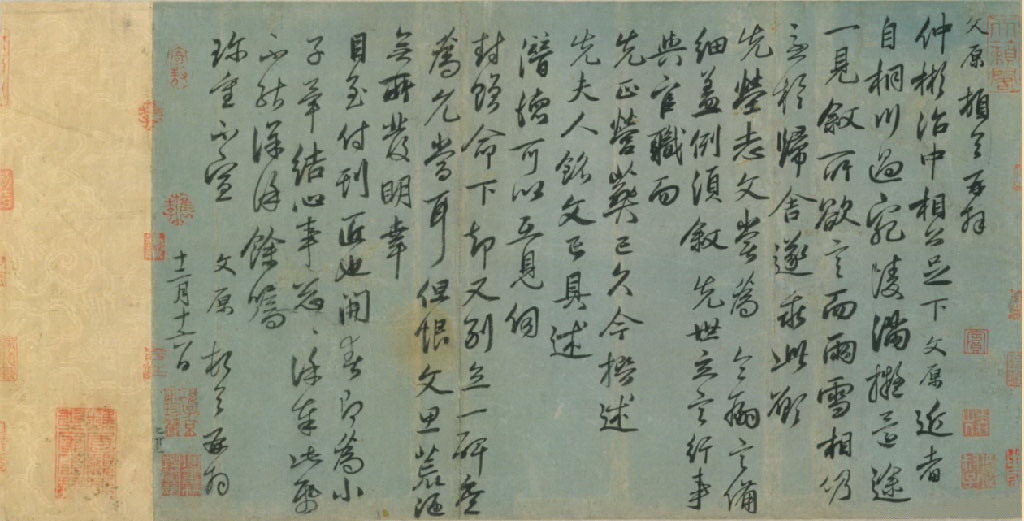 文原頓首再拜
仲彬治中相公足下文原近者
自桐川過宛陵滿擬邂途
一見敘所欲言而雨雪相仍
亟於歸舍遂乖此願
先塋志文嘗為令嗣言備
細蓋例須敘先世立言行事
與官職而
先正塋葬已久今撰述
先夫人銘文已具述
潛德可以互見伺
封贈命下卻又別立一碑庶
為允當耳但恨文思荒涸
無所發明幸
目至付刊匠也開春即為小
子華結心事忽忽
不能詳餘
珍重不宣
文原頓首再拜
十二月十二日